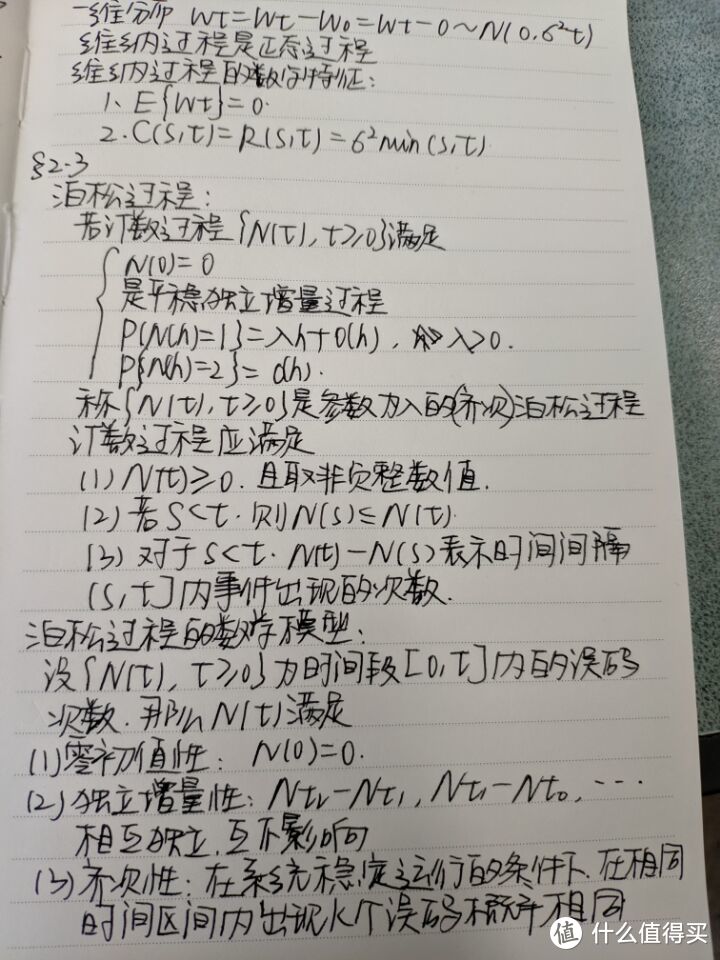 一维分布 Wt=Wt-W0=Wt-0~N(0,6²t)
维纳过程是正态过程
维纳过程的数字特征:
1、E{Wt}=0.
2.C(s,t)=R(s,t)=6²min(s,t)
§2-3
泊松过程:
若计数过程{N(t),t≥0}满足
N(0)=0
是平稳独立增量过程
P{N(h)=1}=λh+o(h),λ>0.
P{N(h)=2}=o(h).
称{N(t),t≥0}是参数为λ的(齐次)泊松过程
计数过程应满足
(1)N(t)≥0.且取非负整数值.
(2)若s<t.则N(s)≤N(t)
(3)对于s<t.N(t)-N(s)表示时间间隔
(s,t]内事件出现的次数.
泊松过程的数学模型:
设{N(t),t≥0}为时间段[0,t]内的误码
次数.那么N(t)满足
(1)零初值性:N(0)=0.
(2)独立增量性:Nt2-Nt1,Nt1-Nt0,…
相互独立,互不影响
(3)齐次性:在系统稳定运行的条件下,在相同
时间区间内出现k个误码概率相同
值 什么值得买